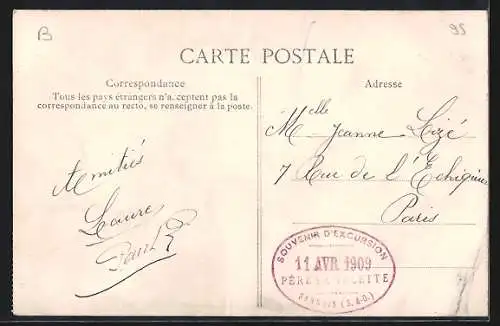 B
95
CARTE POSTALE
Correspondance
Tous les pays étrangers n'a.ceptent pas la
correspondance au recto, se renseigner à la poste.
Amitiés
Laure
Adresse
Melle Jeanne
7 Rue de l'Echiquier
Paris
SOUVENIR D'EXCURSION
11 AVR 1909
PÈRE LA
SANNOIS (S.&O.)